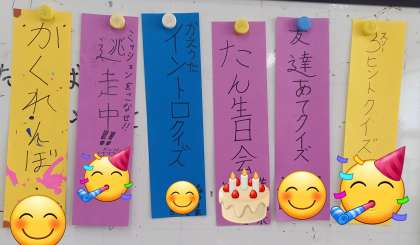 がくれんぼ
ミッションをこなせ!!
逃走中!!
イントロクイズ
たん生日会
友達あてクイズ
3ヒントクイズ